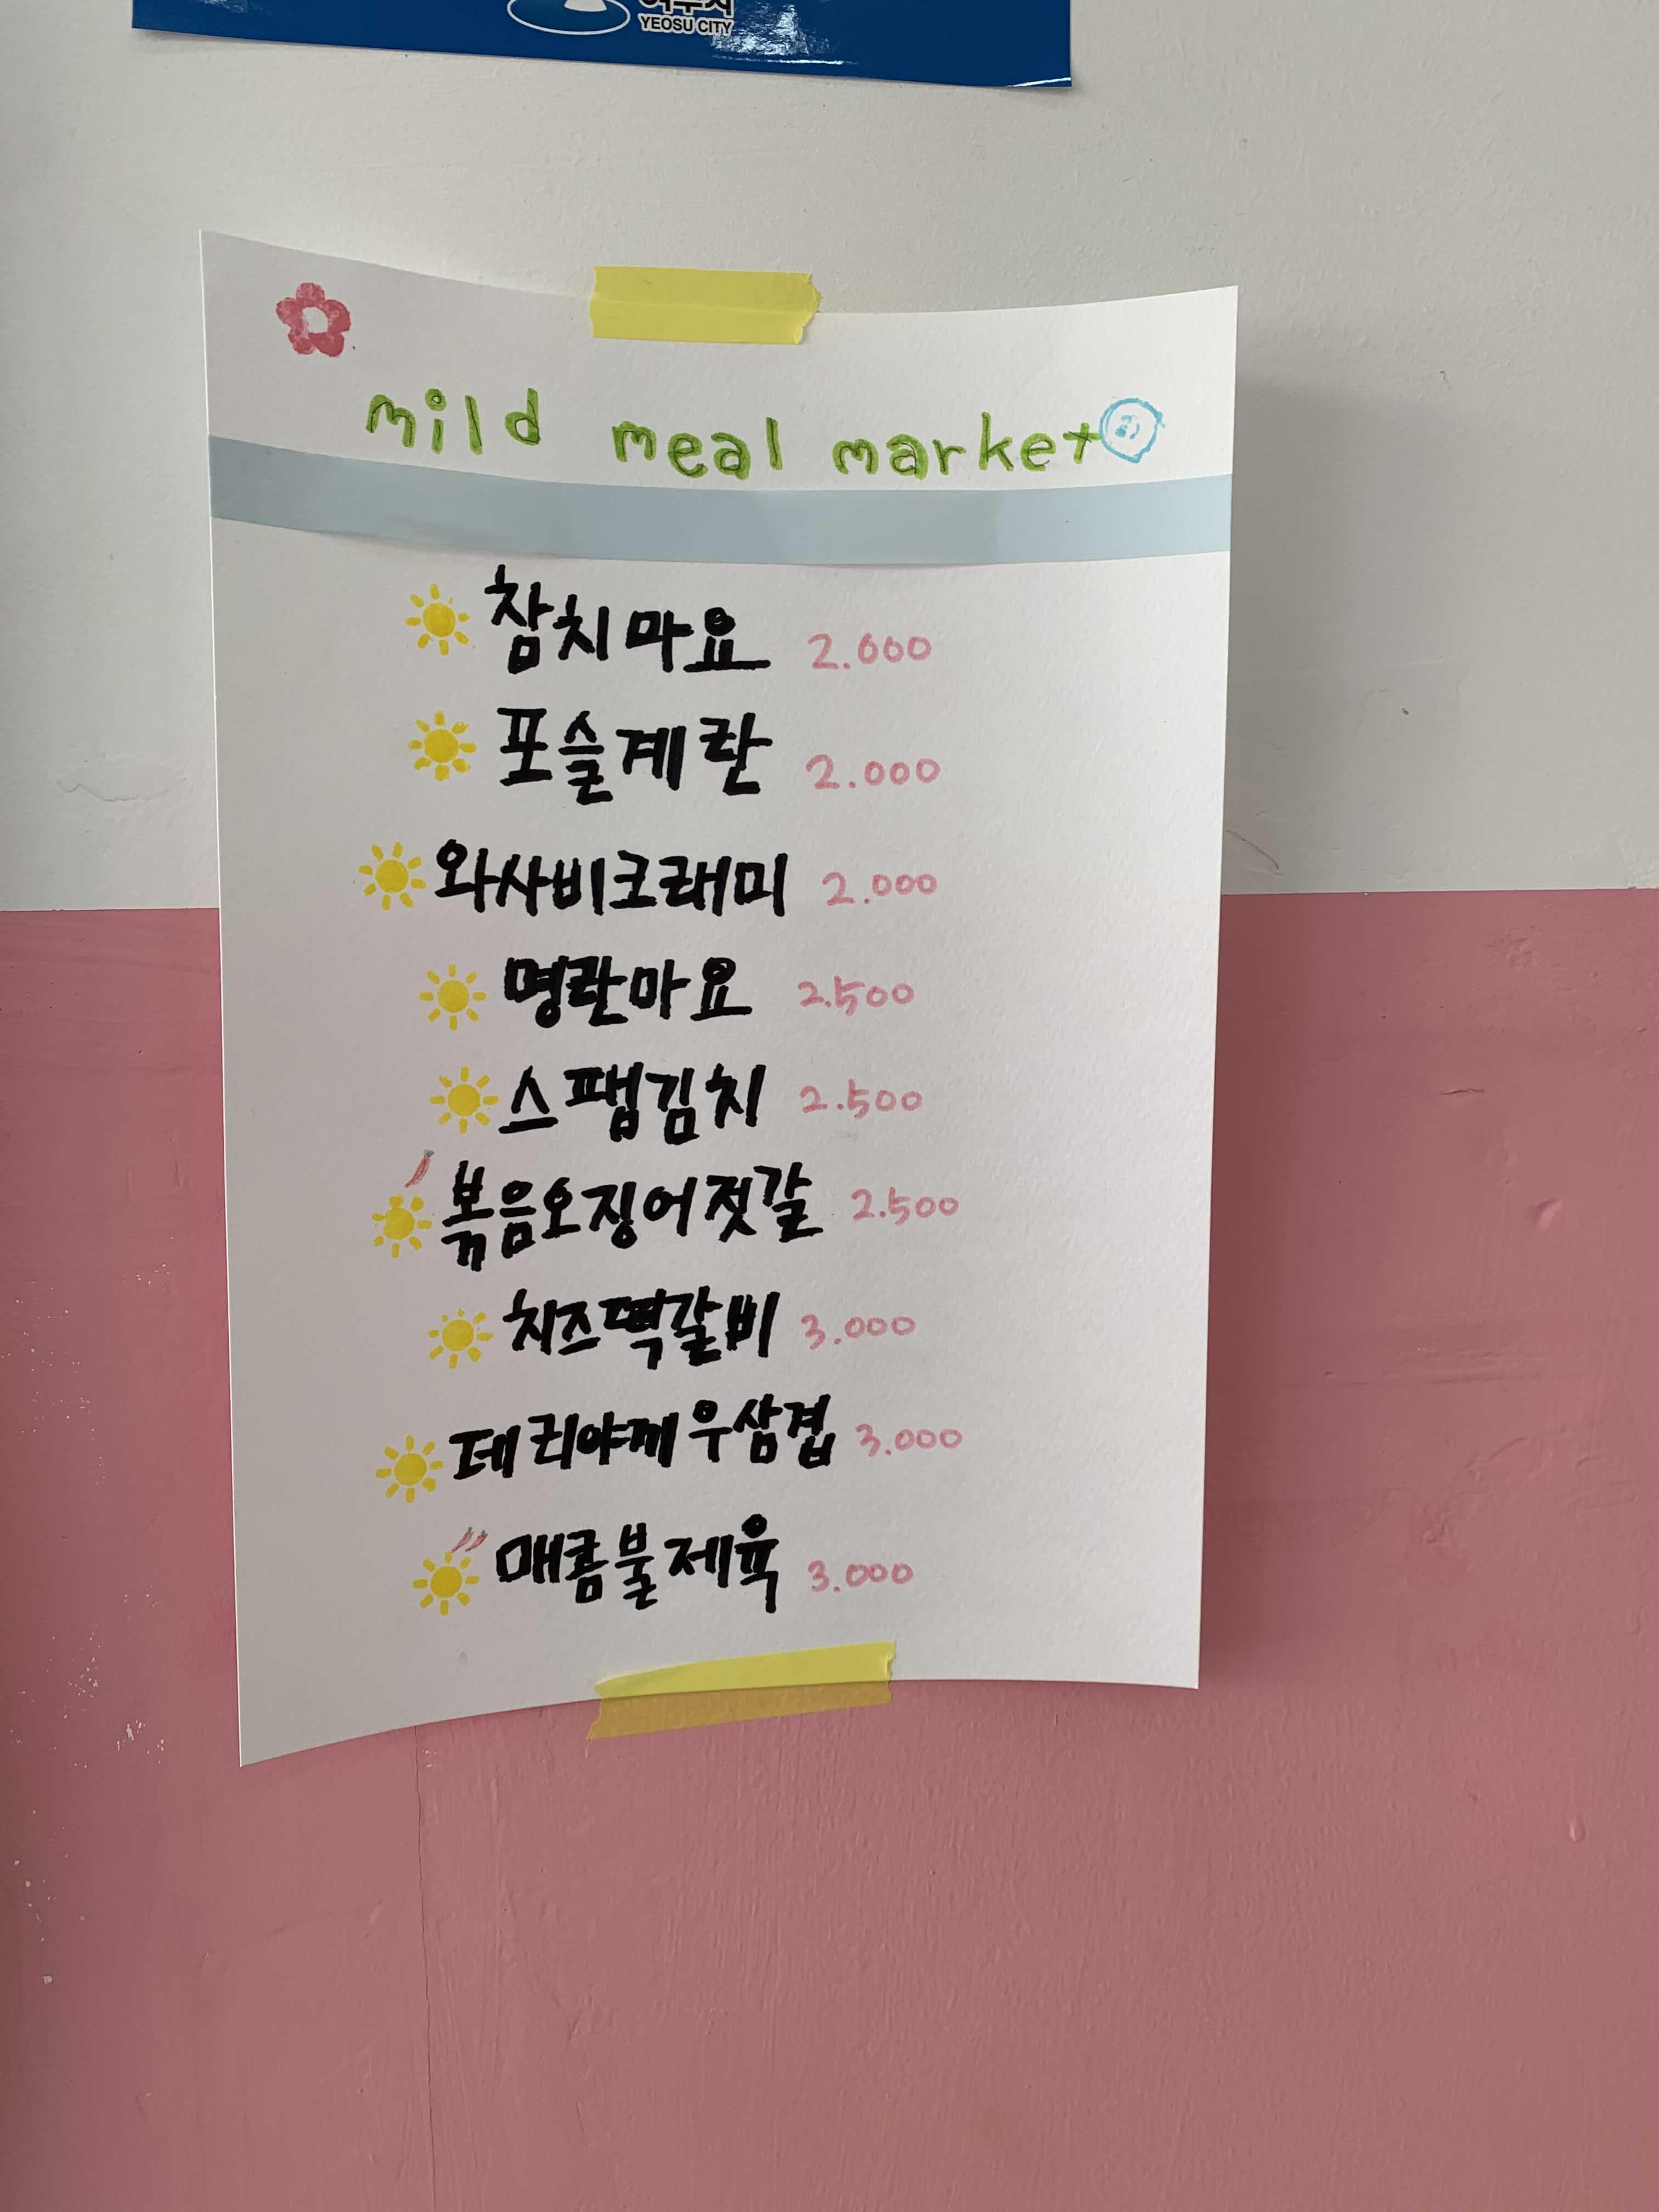 YEOSU CITY
mild meal market
참치마요 2.000
포슬계란 2.000
와사비크래미 2.000
명란마요 2.500
스팸김치 2.500
볶음오징어젓갈 2.500
치즈떡갈비 3.000
데리야끼우삼겹 3.000
매콤불제육 3.000